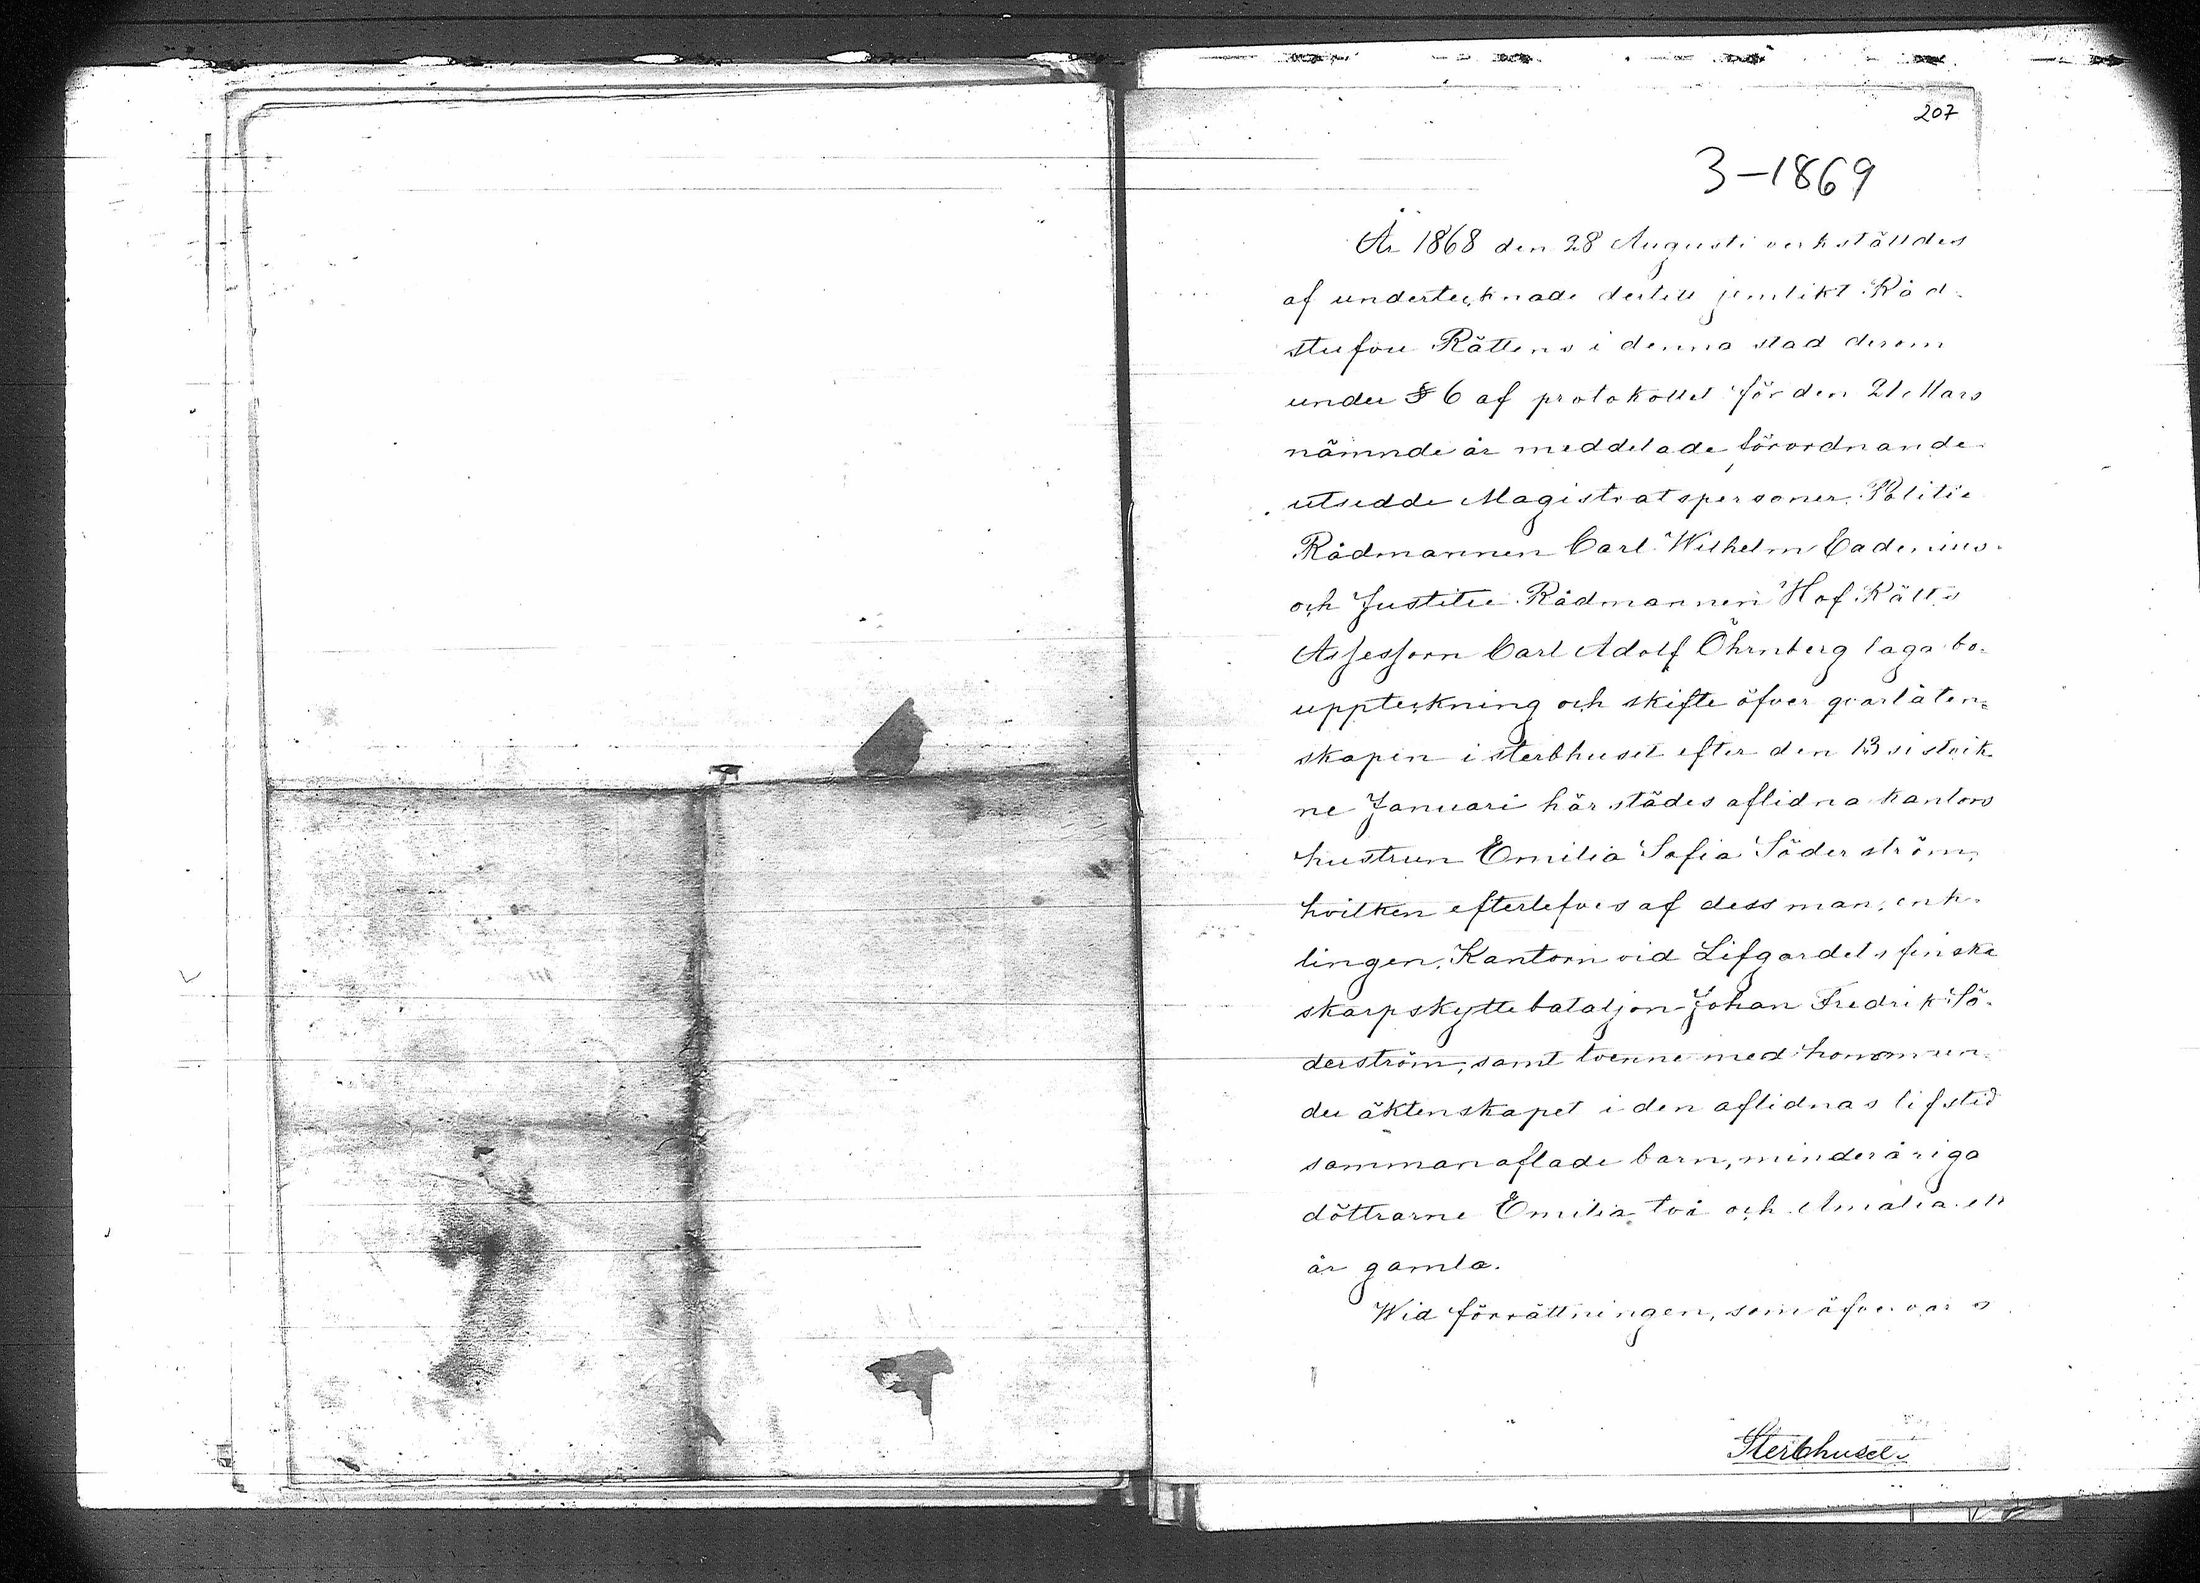 207
3-1869
År 1868 den 28 Augusti verkställdes
af undertecknade dertill jemlikt Råd-
stufvu Rättens i denna stad derom
under § 6 af protokollet för den 21 Mars
nämnde år meddelade förordnande
utsedde Magistratspersoner, Politie
Rådmannen Carl Wilhelm Cadenius
och Justitie Rådmannen Hof Rätts
Assessorn Carl Adolf Öhrnberg laga bo-
uppteckning och skifte öfver qvarlåten-
skapen i sterbhuset efter den 13 sistvik
ne Januari härstädes aflidna kantors
hustrun Emilia Sofia Söderström,
hvilken efterlefves af dess man, enk-
lingen, Kantorn vid Lifgardets finska
skarpskyttebataljon Johan Fredrik Sö-
derström, samt tvenne med honom un-
der äktenskapet i den aflidnas lifstid
sammanaflade barn, minderåriga
döttrarne Emilia två och Amalia ett
år gamla.
Wid förrättningen, som öfvervars
Sterbhusets